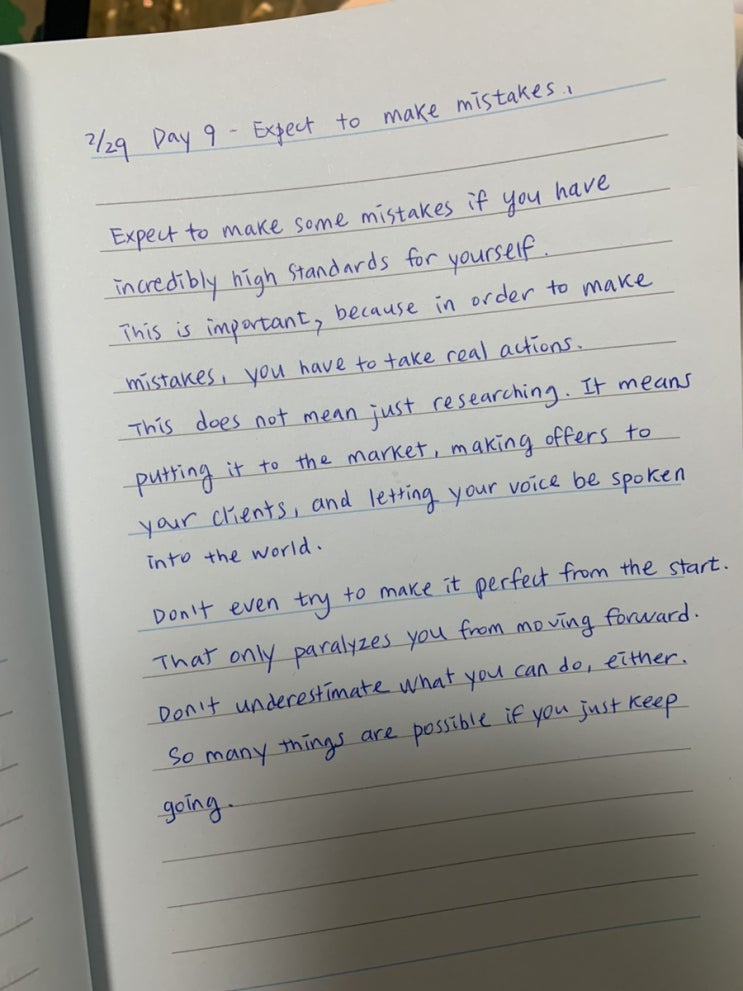 2/29 Day 9 - Expect to make mistakes.
Expect to make some mistakes if you have
incredibly high standards for yourself.
This is important, because in order to make
mistakes, you have to take real actions.
This does not mean just researching. It means
putting it to the market, making offers to
your clients, and letting your voice be spoken
into the world.
Don't even try to make it perfect from the start.
That only paralyzes you from moving forward.
Don't underestimate what you can do, either.
So many things are possible if you just keep
going.